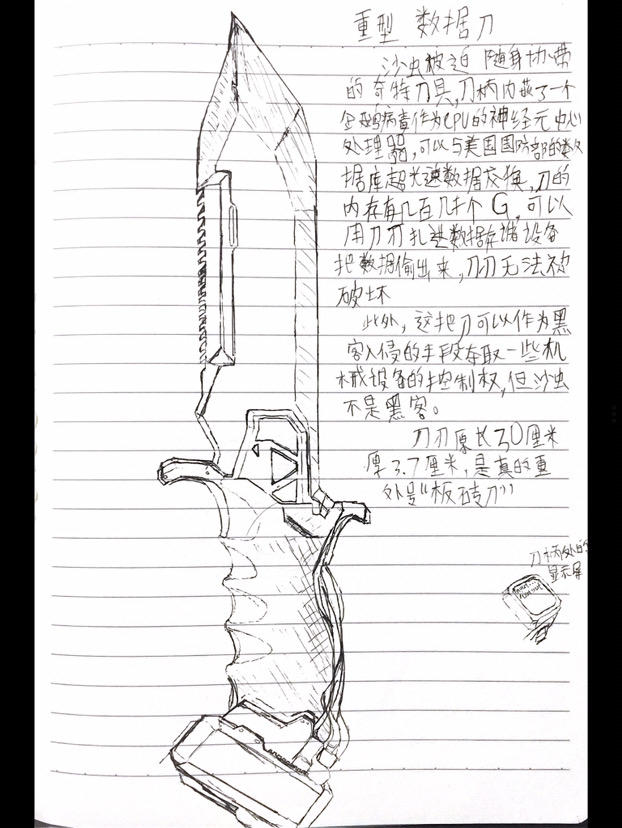 重型 数据刀
沙虫被迫 随身协带
的奇特刀具,刀柄内嵌了一个
企鹅病毒作为CPU的神经元中心
处理器,可以与美国国防部的数
据库超光速数据交换,刀的
内存有几百几十个G,可以
用刀刃扎进数据存储设备
把数据偷出来,刀刃无法被
破坏
此外,这把刀可以作为黑
客入侵的手段夺取一些机
械设备的控制权,但沙虫
不是黑客。
刀刃原长30厘米
厚3.7厘米,是真的重
外号"板砖刀"
刀柄处的
显示屏